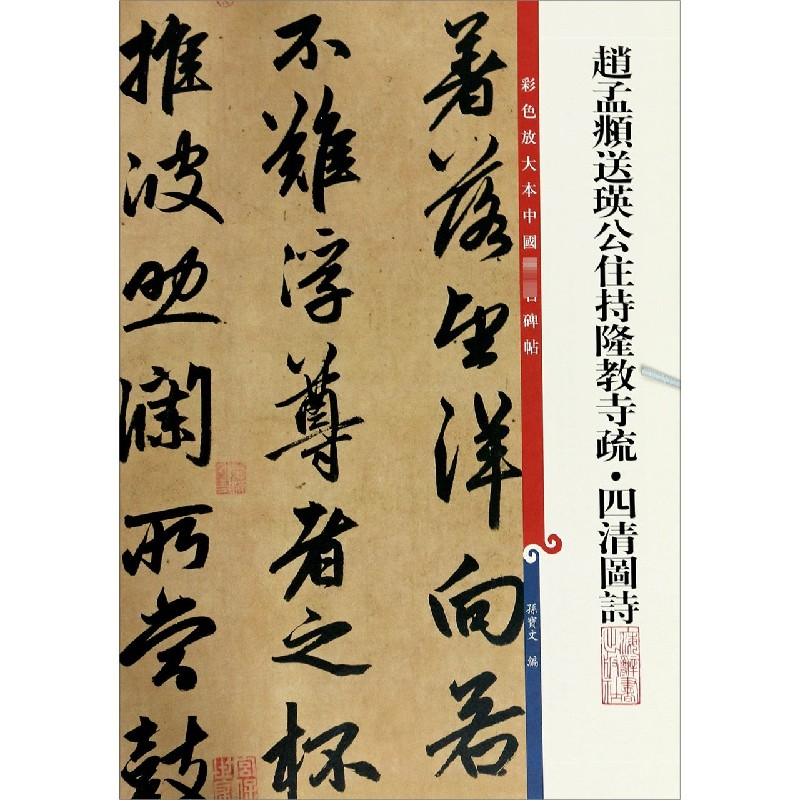 趙孟頫送瑛公住持隆教寺疏·四清圖詩
彩色放大本中國
碑帖
孫寶文 編
著落望洋向若
不難浮尊者之杯
推波助瀾所當鼓